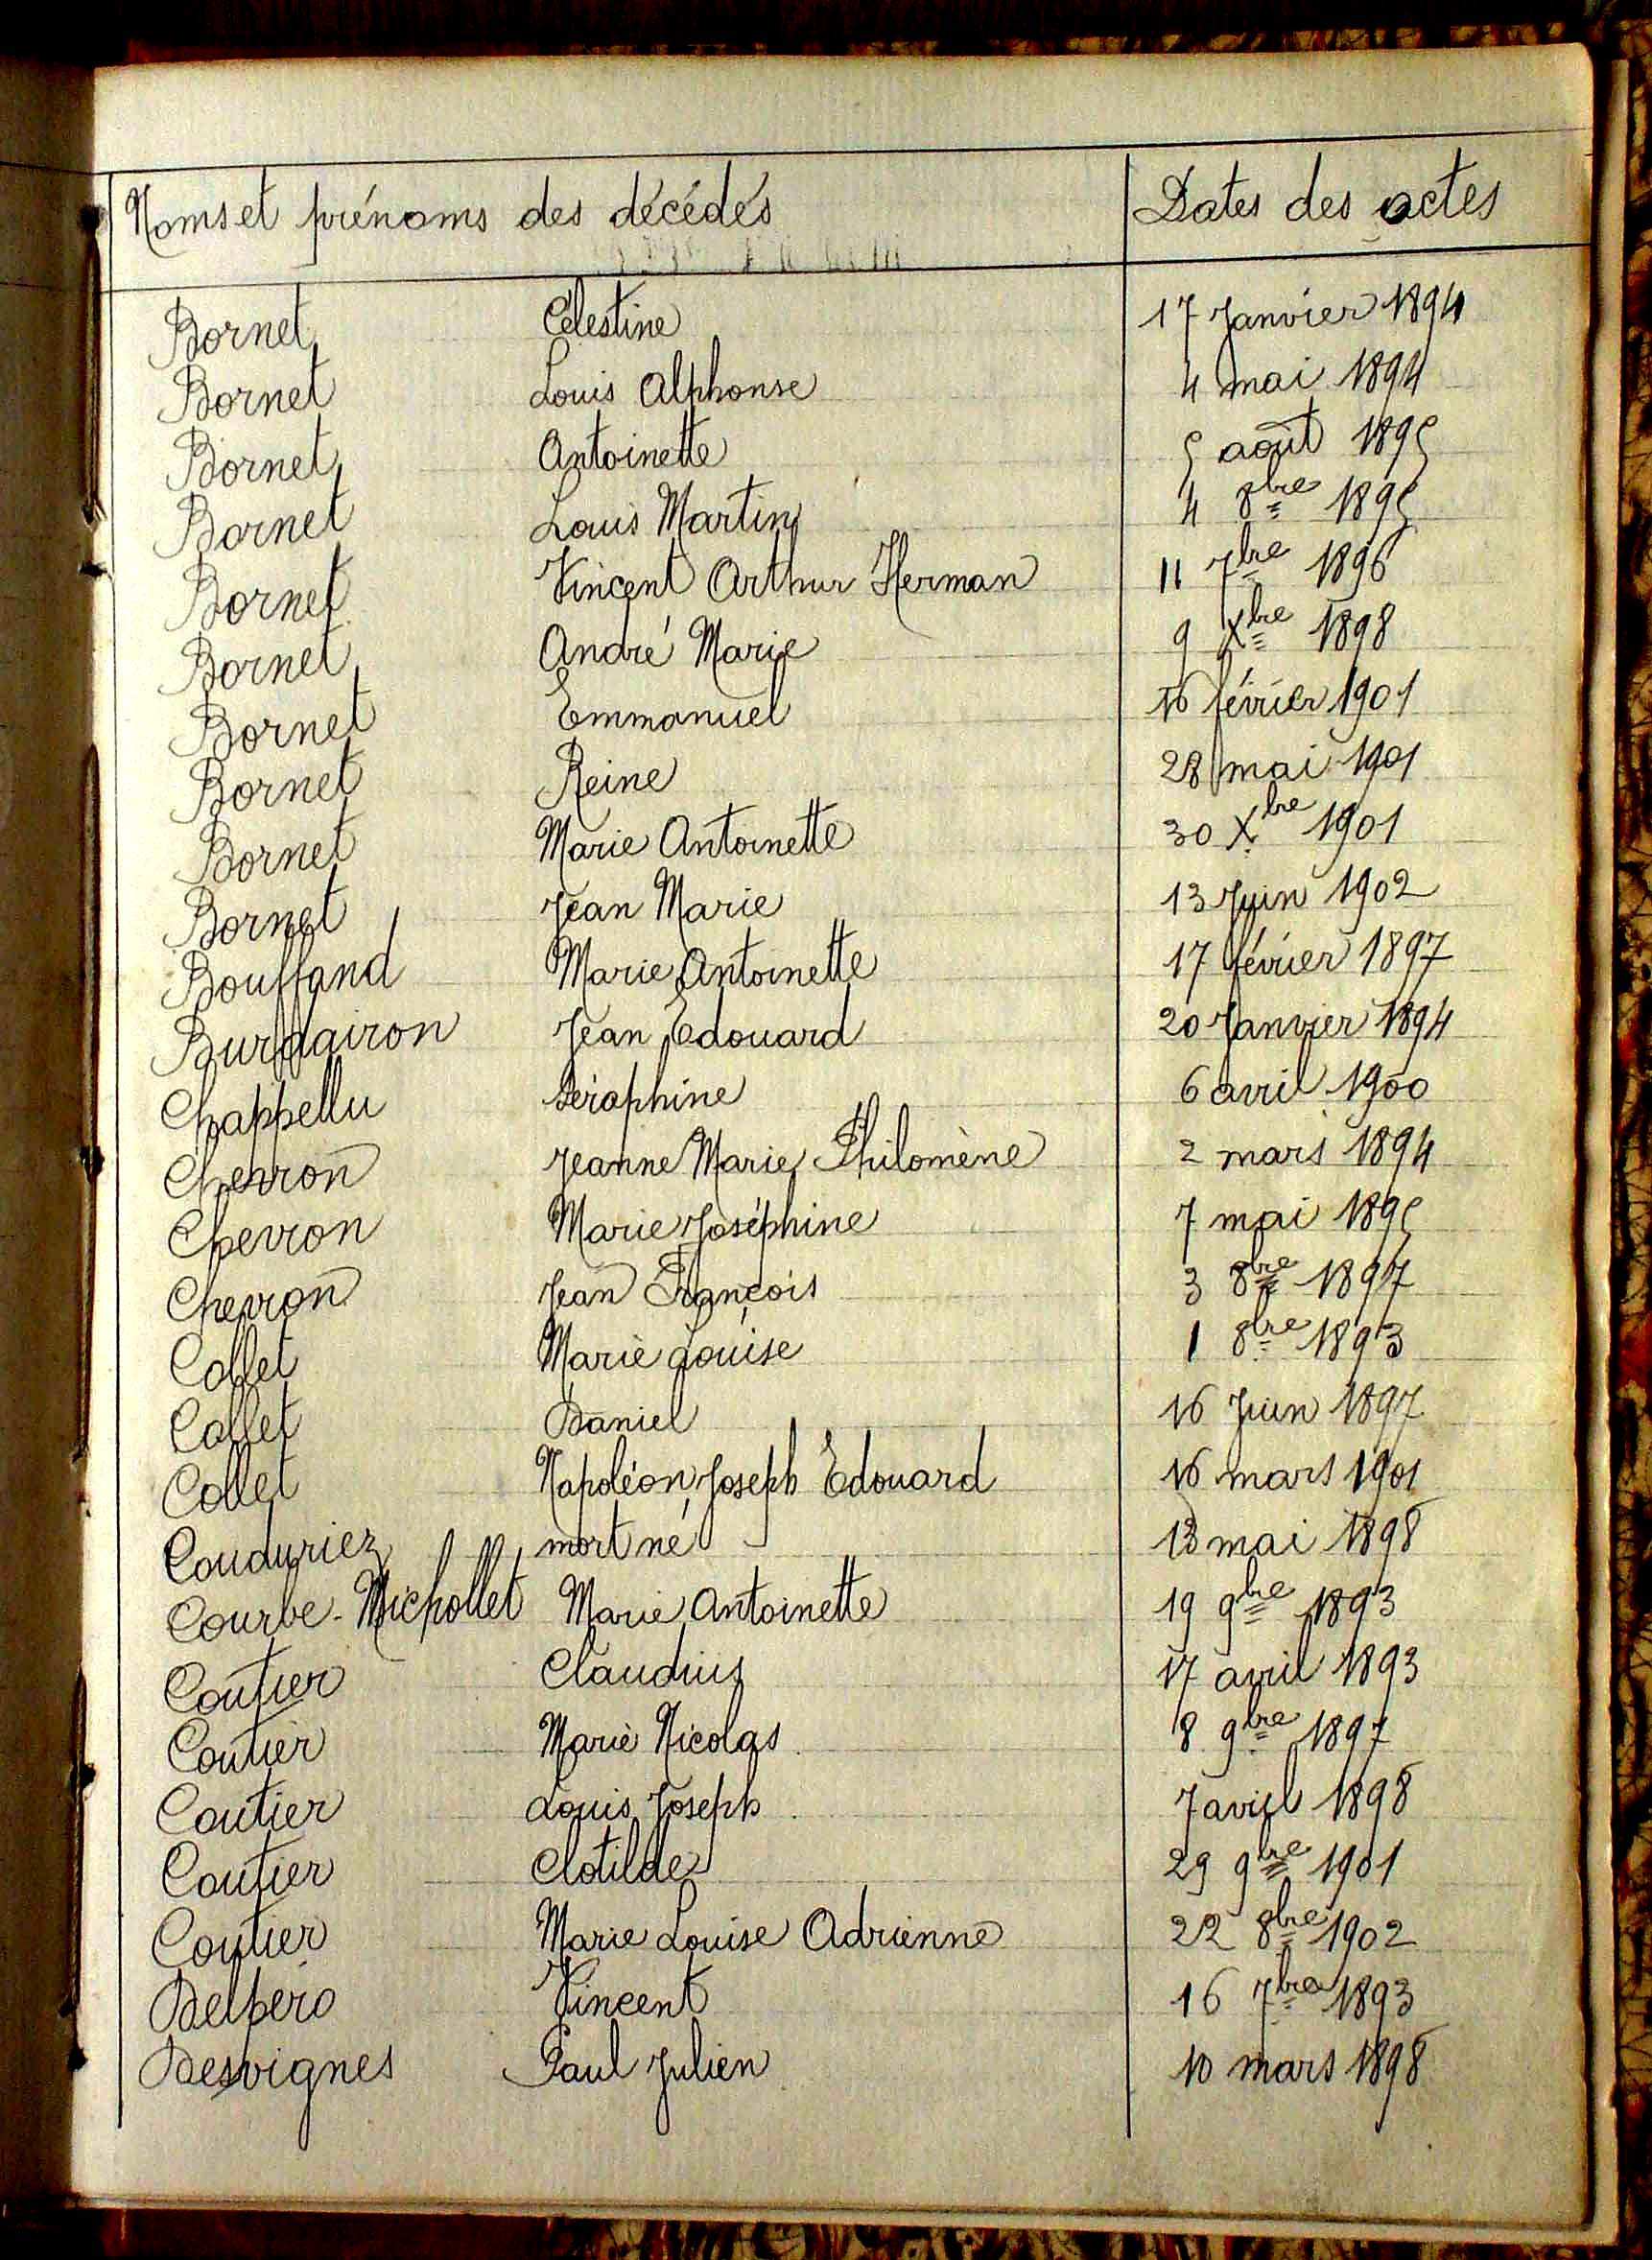 Noms et prénoms des décédés Dates des actes
Bornet Célestine 17 Janvier 1894
Bornet Louis Alphonse 4 mai 1894
Bornet Antoinette 5 août 1895
Bornet Louis Martin 4 8bre 1895
Bornet Vincent Arthur Herman 11 7bre 1896
Bornet André Marie 9 Xbre 1898
Bornet Emmanuel 16 février 1901
Bornet Reine 28 mai 1901
Bornet Marie Antoinette 30 Xbre 1901
Bornet Jean Marie 13 Juin 1902
Bouffand Marie Antoinette 17 février 1897
Burdairon Jean Edouard 20 Janvier 1894
Chappellu Séraphine 6 avril 1900
Chevron Jeanne Marie Philomène 2 mars 1894
Chevron Marie Joséphine 7 mai 1895
Chevron Jean François 3 8bre 1897
Collet Marie Louise 1 8bre 1893
Collet Daniel 16 Juin 1897
Collet Napoléon Joseph Edouard 16 mars 1901
Couduriez mort né 13 mai 1898
Courbe-Michollet Marie Antoinette 19 9bre 1893
Coutier Claudius 17 avril 1893
Coutier Marie Nicolas 8 9bre 1897
Coutier Louis Joseph 7 avril 1898
Coutier Clotilde 29 9bre 1901
Coutier Marie Louise Adrienne 22 8bre 1902
Delpero Vincent 16 7bre 1893
Desvignes Paul Julien 10 mars 1898